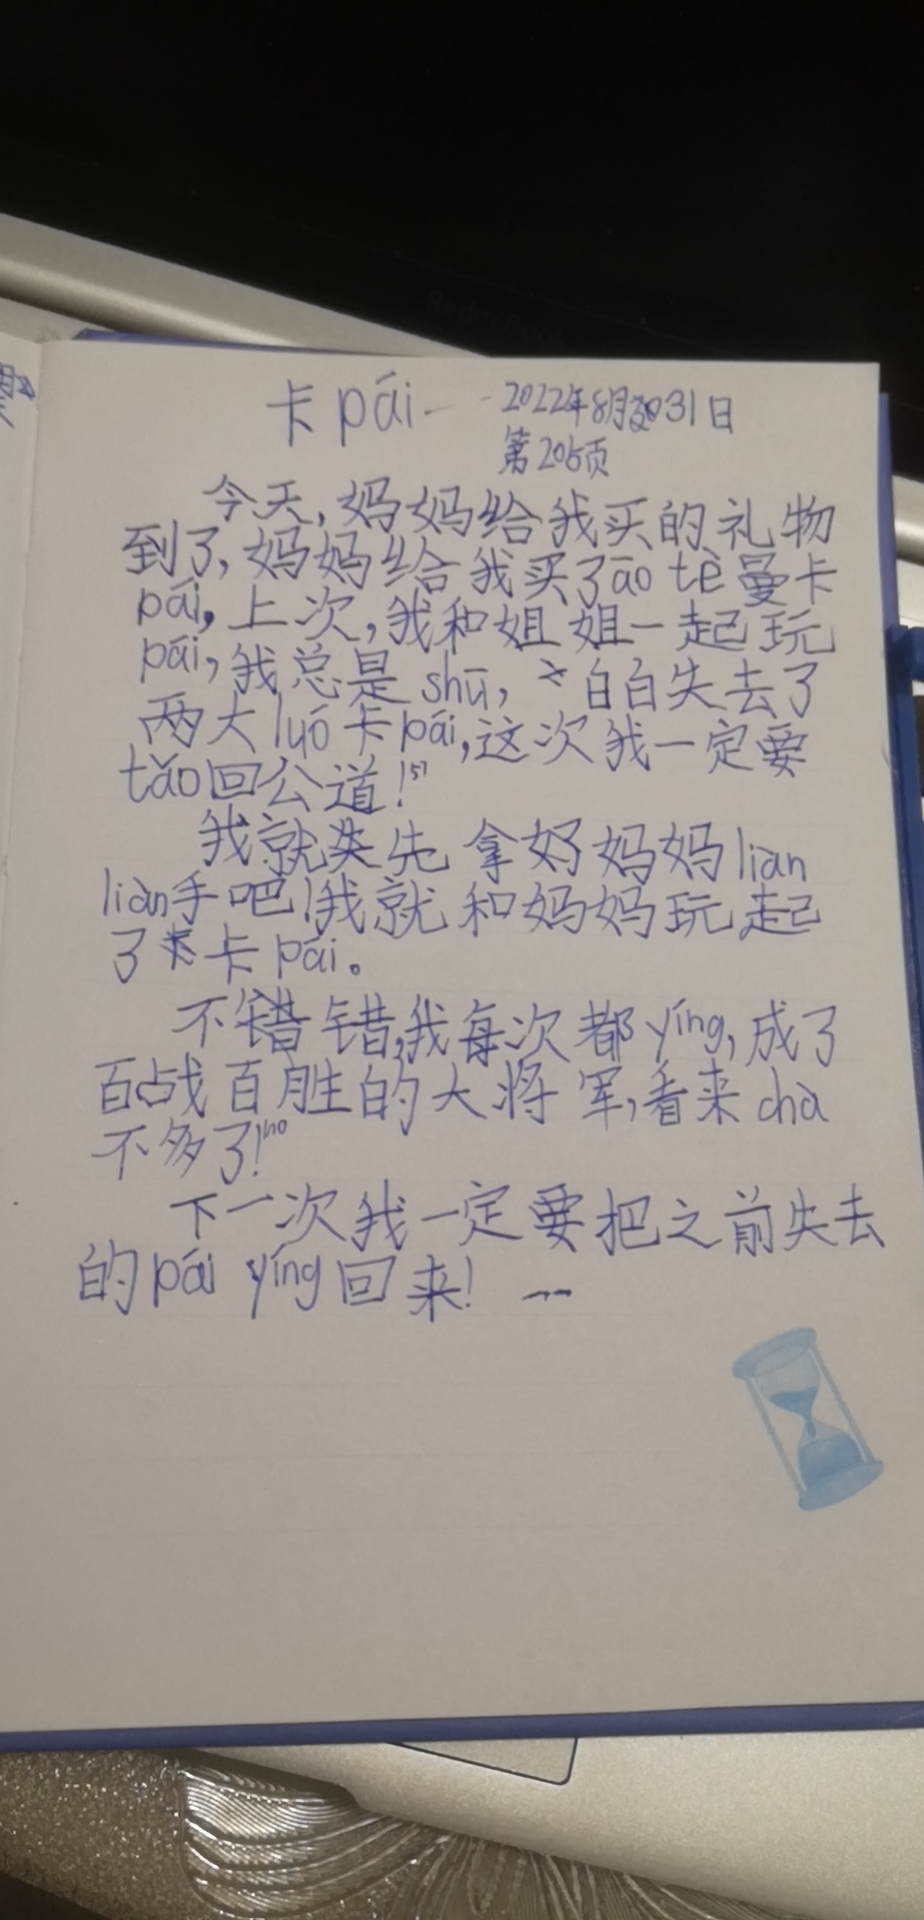 卡pái 2022年8月31日
第205页
今天,妈妈给我买的礼物
到了,妈妈给我买了āo tè曼卡
pái。上次,我和姐姐一起玩
pái,我总是shū,白白失去了
两大luó卡pái,这次我一定要
tǎo回公道!51
我就先拿好妈妈liàn
liàn手吧!我就和妈妈玩起
了卡pái。
不错错,我每次都yíng,成了
百战百胜的大将军,看来chà
不多了!110
下一次我一定要把之前失去
的pái yíng回来!